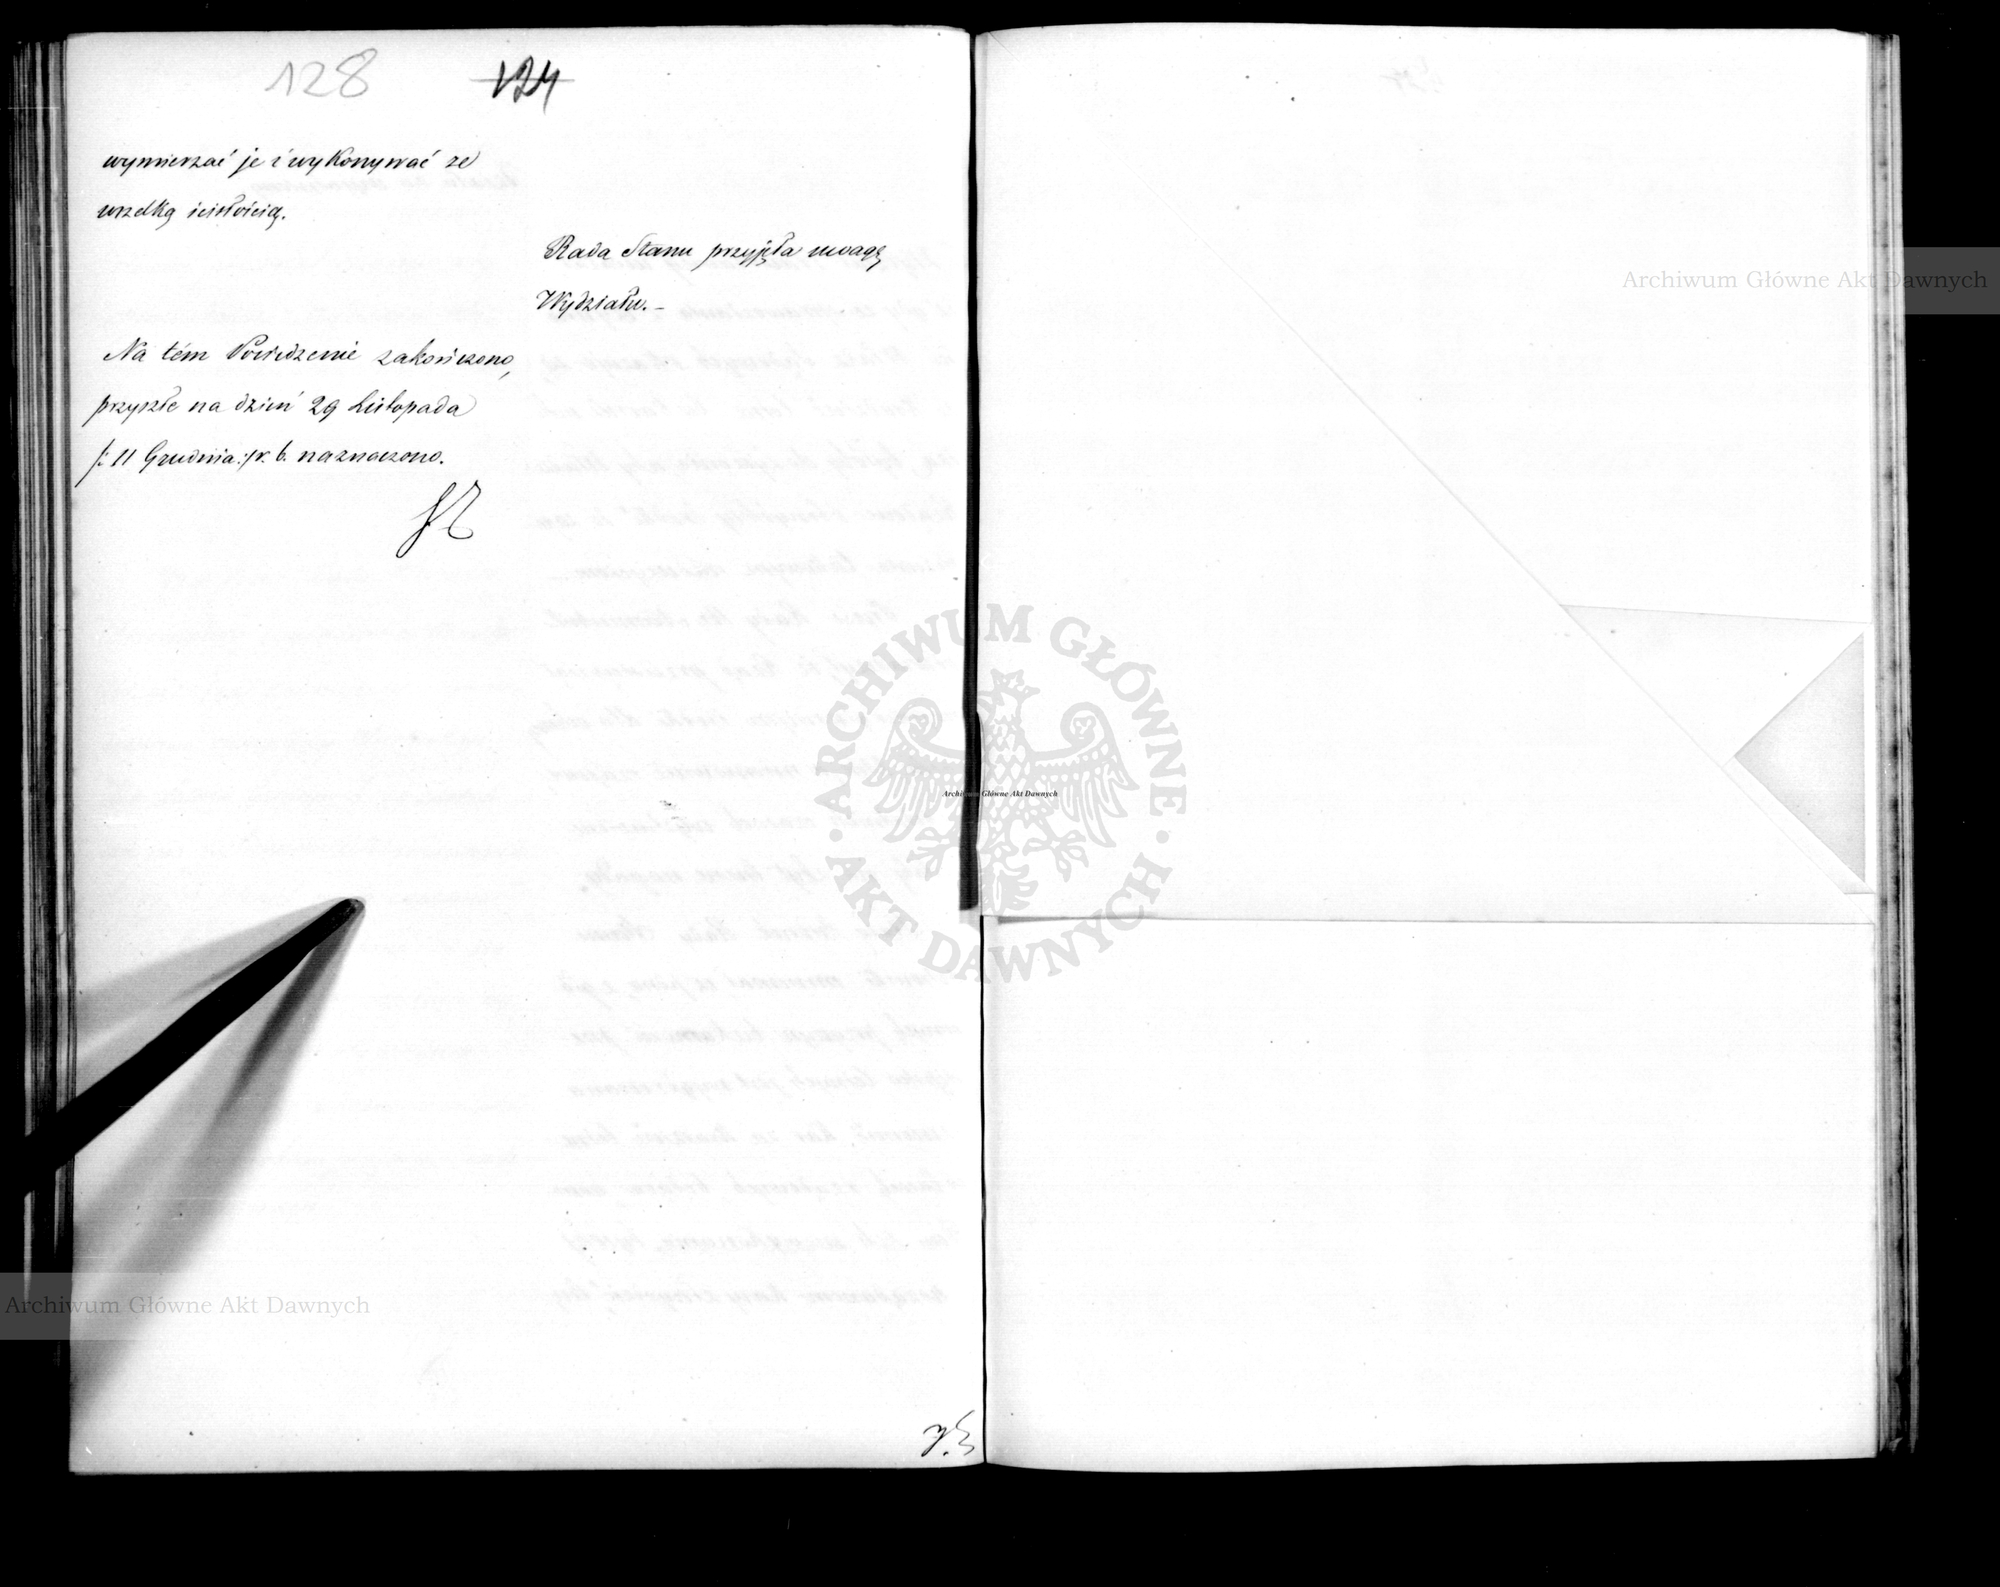 128 124
wymierzać je i wykonywać ze
wszelką ścisłością.
Rada Stanu przyjęła uwagę
Wydziału. –
Na tém Posiedzenie zakończono,
przyszłe na dzień 29 Listopada
/: 11 Grudnia :/ r. b. naznaczono.
Archiwum Główne Akt Dawnych
ARCHIWUM GŁÓWNE · AKT DAWNYCH ·
Archiwum Główne Akt Dawnych
Archiwum Główne Akt Dawnych